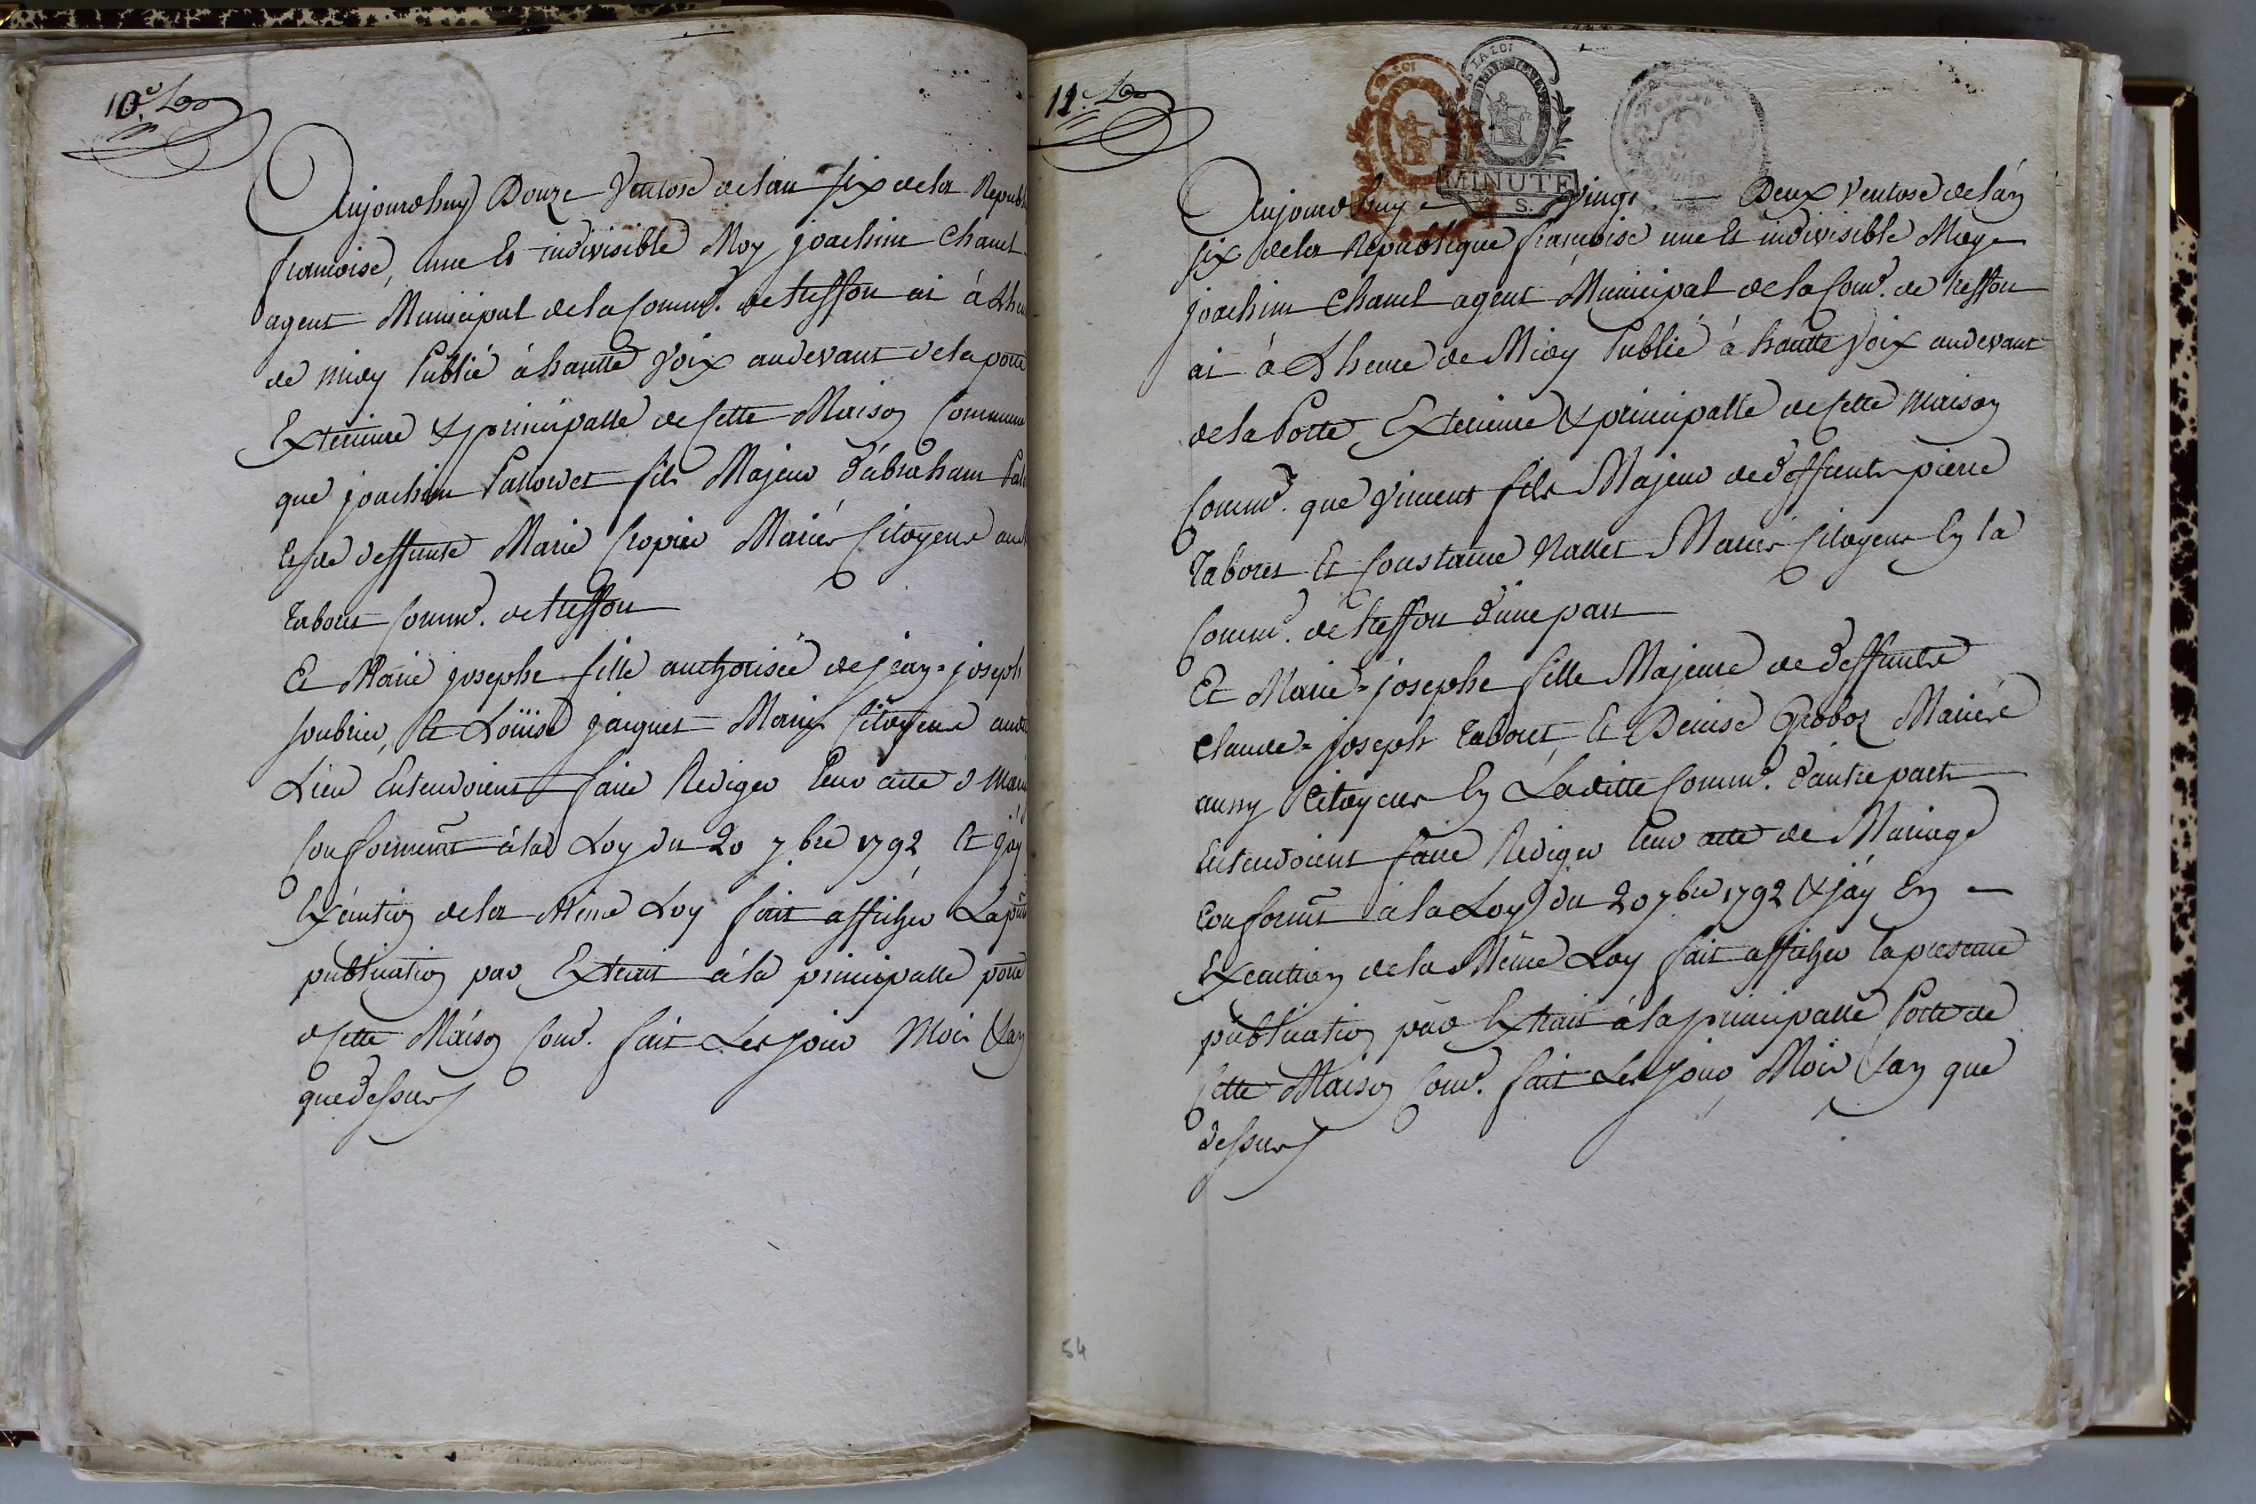 10e
Aujourdhuy Douze Ventose de lan six de la Republ
francoise, une et indivisible Moy joachim Chanel
agent Municipal de la Comme. de tresfon ai à Lheu
de midy Publié à hautte Voix audevant de la porte
Exterieure & principalle de Cette Maison Commune
que joachim fils Majeur d'abraham
Et de deffunte Marie Mariés Citoyens au
Comme. de tresfon
Et Marie josephe fille authorisée de jean=joseph
Et Loüise jacquet Mariés Citoyens
Lieu Entendoient faire Rediger leur acte d Mari
Conformemt à la Loy du 20 7bre 1792 Et j'ay
Exécution de la Même Loy fait afficher La pnte
publication par Extrait à la principalle porte
d Cette Maison Come. fait Les jour Mois & an
que dessus
11
LA LOI
LA LOI
MINUTE
S.
Aujourdhuy Vingt Deux Ventose de lan
six de la Republique françoise une Et indivisible Moy
joachim Chanel agent Municipal de la Come. de tresfon
ai à Lheure de Midy Publié à hautte Voix audevant
de la Porte Exterieure & principalle de Cette Maison
Comme. que Vincent fils Majeur de deffunts pierre
Tabouret Et Constance Nallet Mariés Citoyens En la
Comme. de tresfon d'une part
Et Marie=josephe fille Majeure de deffunts
Claude=joseph Tabouret, Et Denise Groboz Mariés
aussy Citoyens En Laditte Comme. d'autre part
Entendoient faire Rediger leur acte de Mariage
Conformt à la Loy du 20 7bre 1792 & j'ay En
Execution de la Même Loy fait afficher la presente
publication par Extrait à la principalle Porte de
Cette Maison Come. fait Les jour, Mois & an que
dessus
54